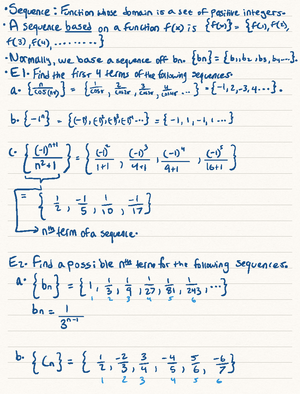 • Sequence: Function whose domain is a set of positive integers.
• A sequence based on a function f(x) is {f(x)} = {f(1), f(2),
f(3), f(4), ..........}
• Normally, we base a sequence off bn. {bn} = {b1, b2, b3, b4...}.
• E1. Find the first 4 terms of the following sequences.
a. {n/cos(πn)} = {1/cosπ, 2/cos2π, 3/cos3π, 4/cos4π ...} = {-1, 2, -3, 4...}.
b. {-1ⁿ} = {(-1)¹, (-1)², (-1)³, (-1)⁴...} = {-1, 1, -1, 1...}
c. {(-1)ⁿ⁺¹/n²+1} = {(-1)²/1+1, (-1)³/4+1, (-1)⁴/9+1, (-1)⁵/16+1}
= {1/2, -1/5, 1/10, -1/17}
nth term of a sequence.
E2. Find a possible nth term for the following sequences.
a. {bn} = {1, 1/3, 1/9, 1/27, 1/81, 1/243, ...}
1 2 3 4 5 6
bn = 1/3ⁿ⁻¹
b. {Cn} = {1/2, -2/3, 3/4, -4/5, 5/6, -6/7}
1 2 3 4 5 6